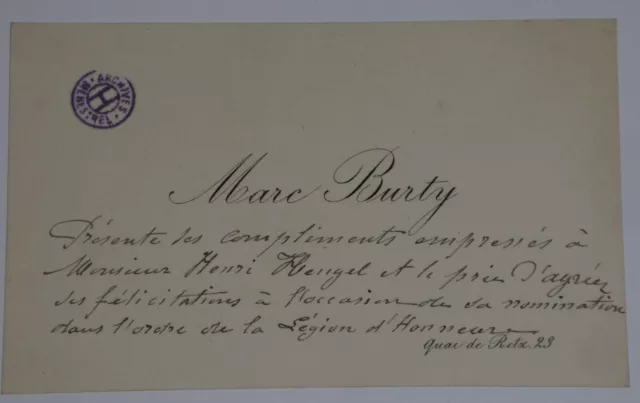 ARCHIVES
HENRI
H
Marc Burty
Présente ses compliments empressés à
Monsieur Henri Hengel et le prie d'agréer
ses félicitations à l'occasion de sa nomination
dans l'ordre de la Légion d'Honneur
Quai de Retz. 23